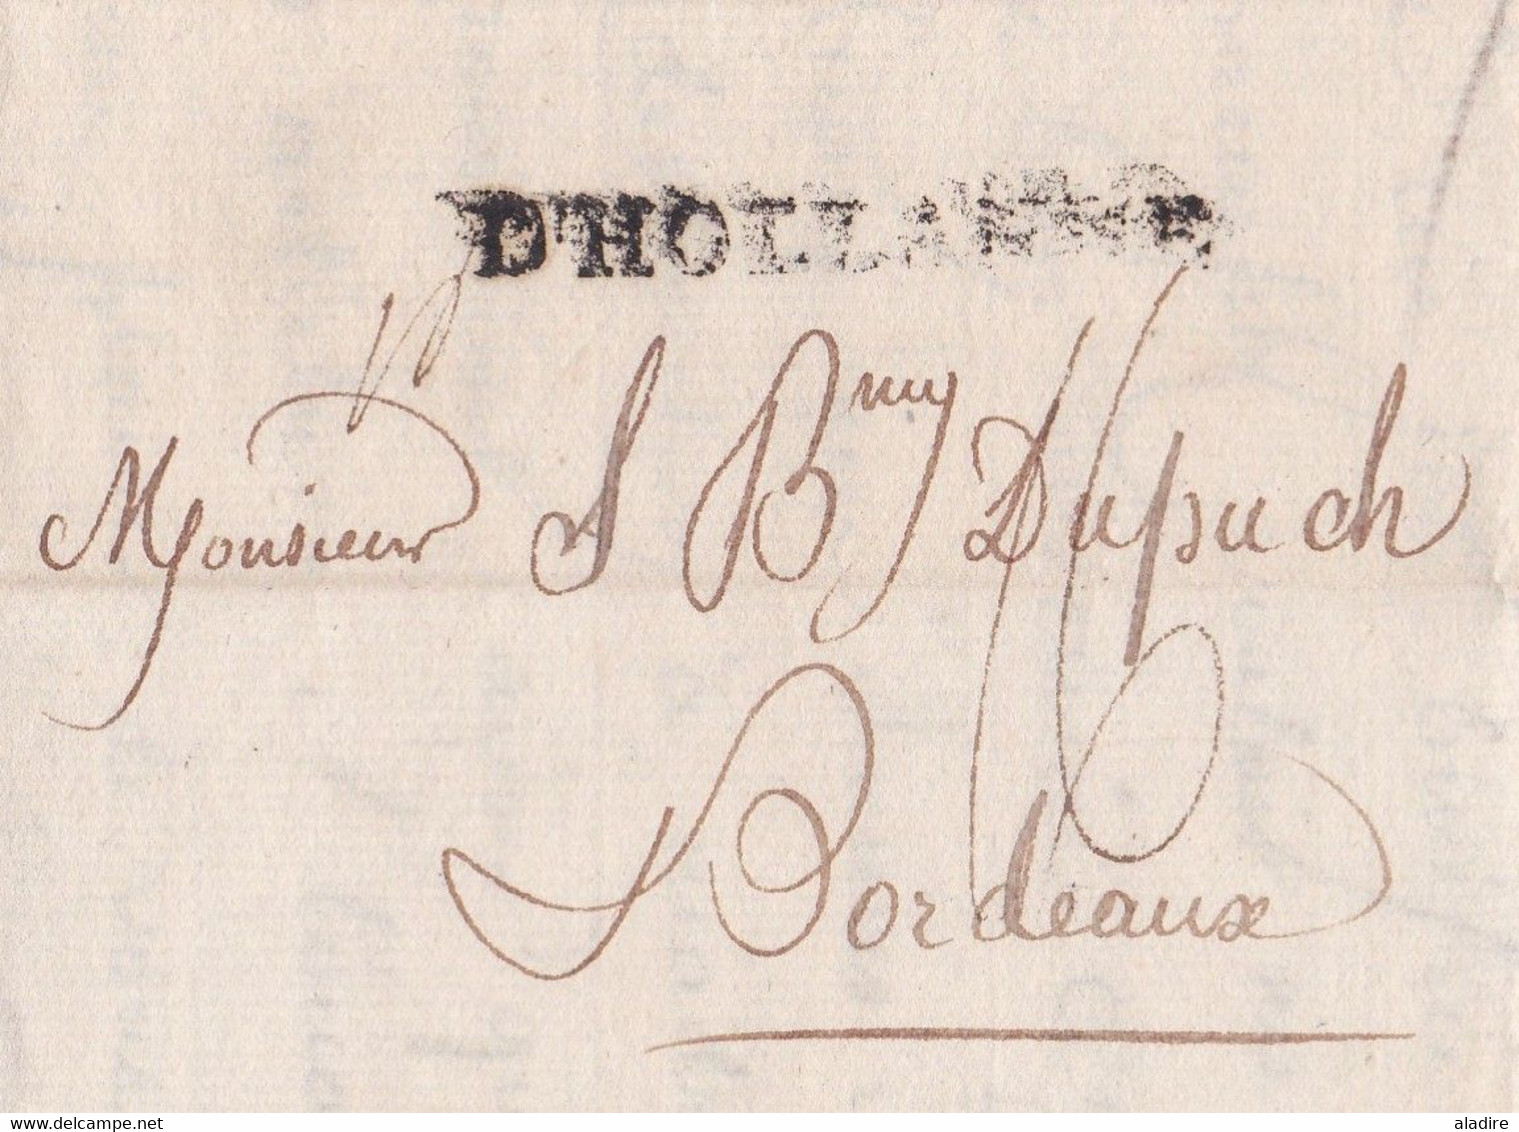 D'HOLLANDE
Monsieur S Bmy Dupuch
16
Bordeaux
delcampe.net
aladire